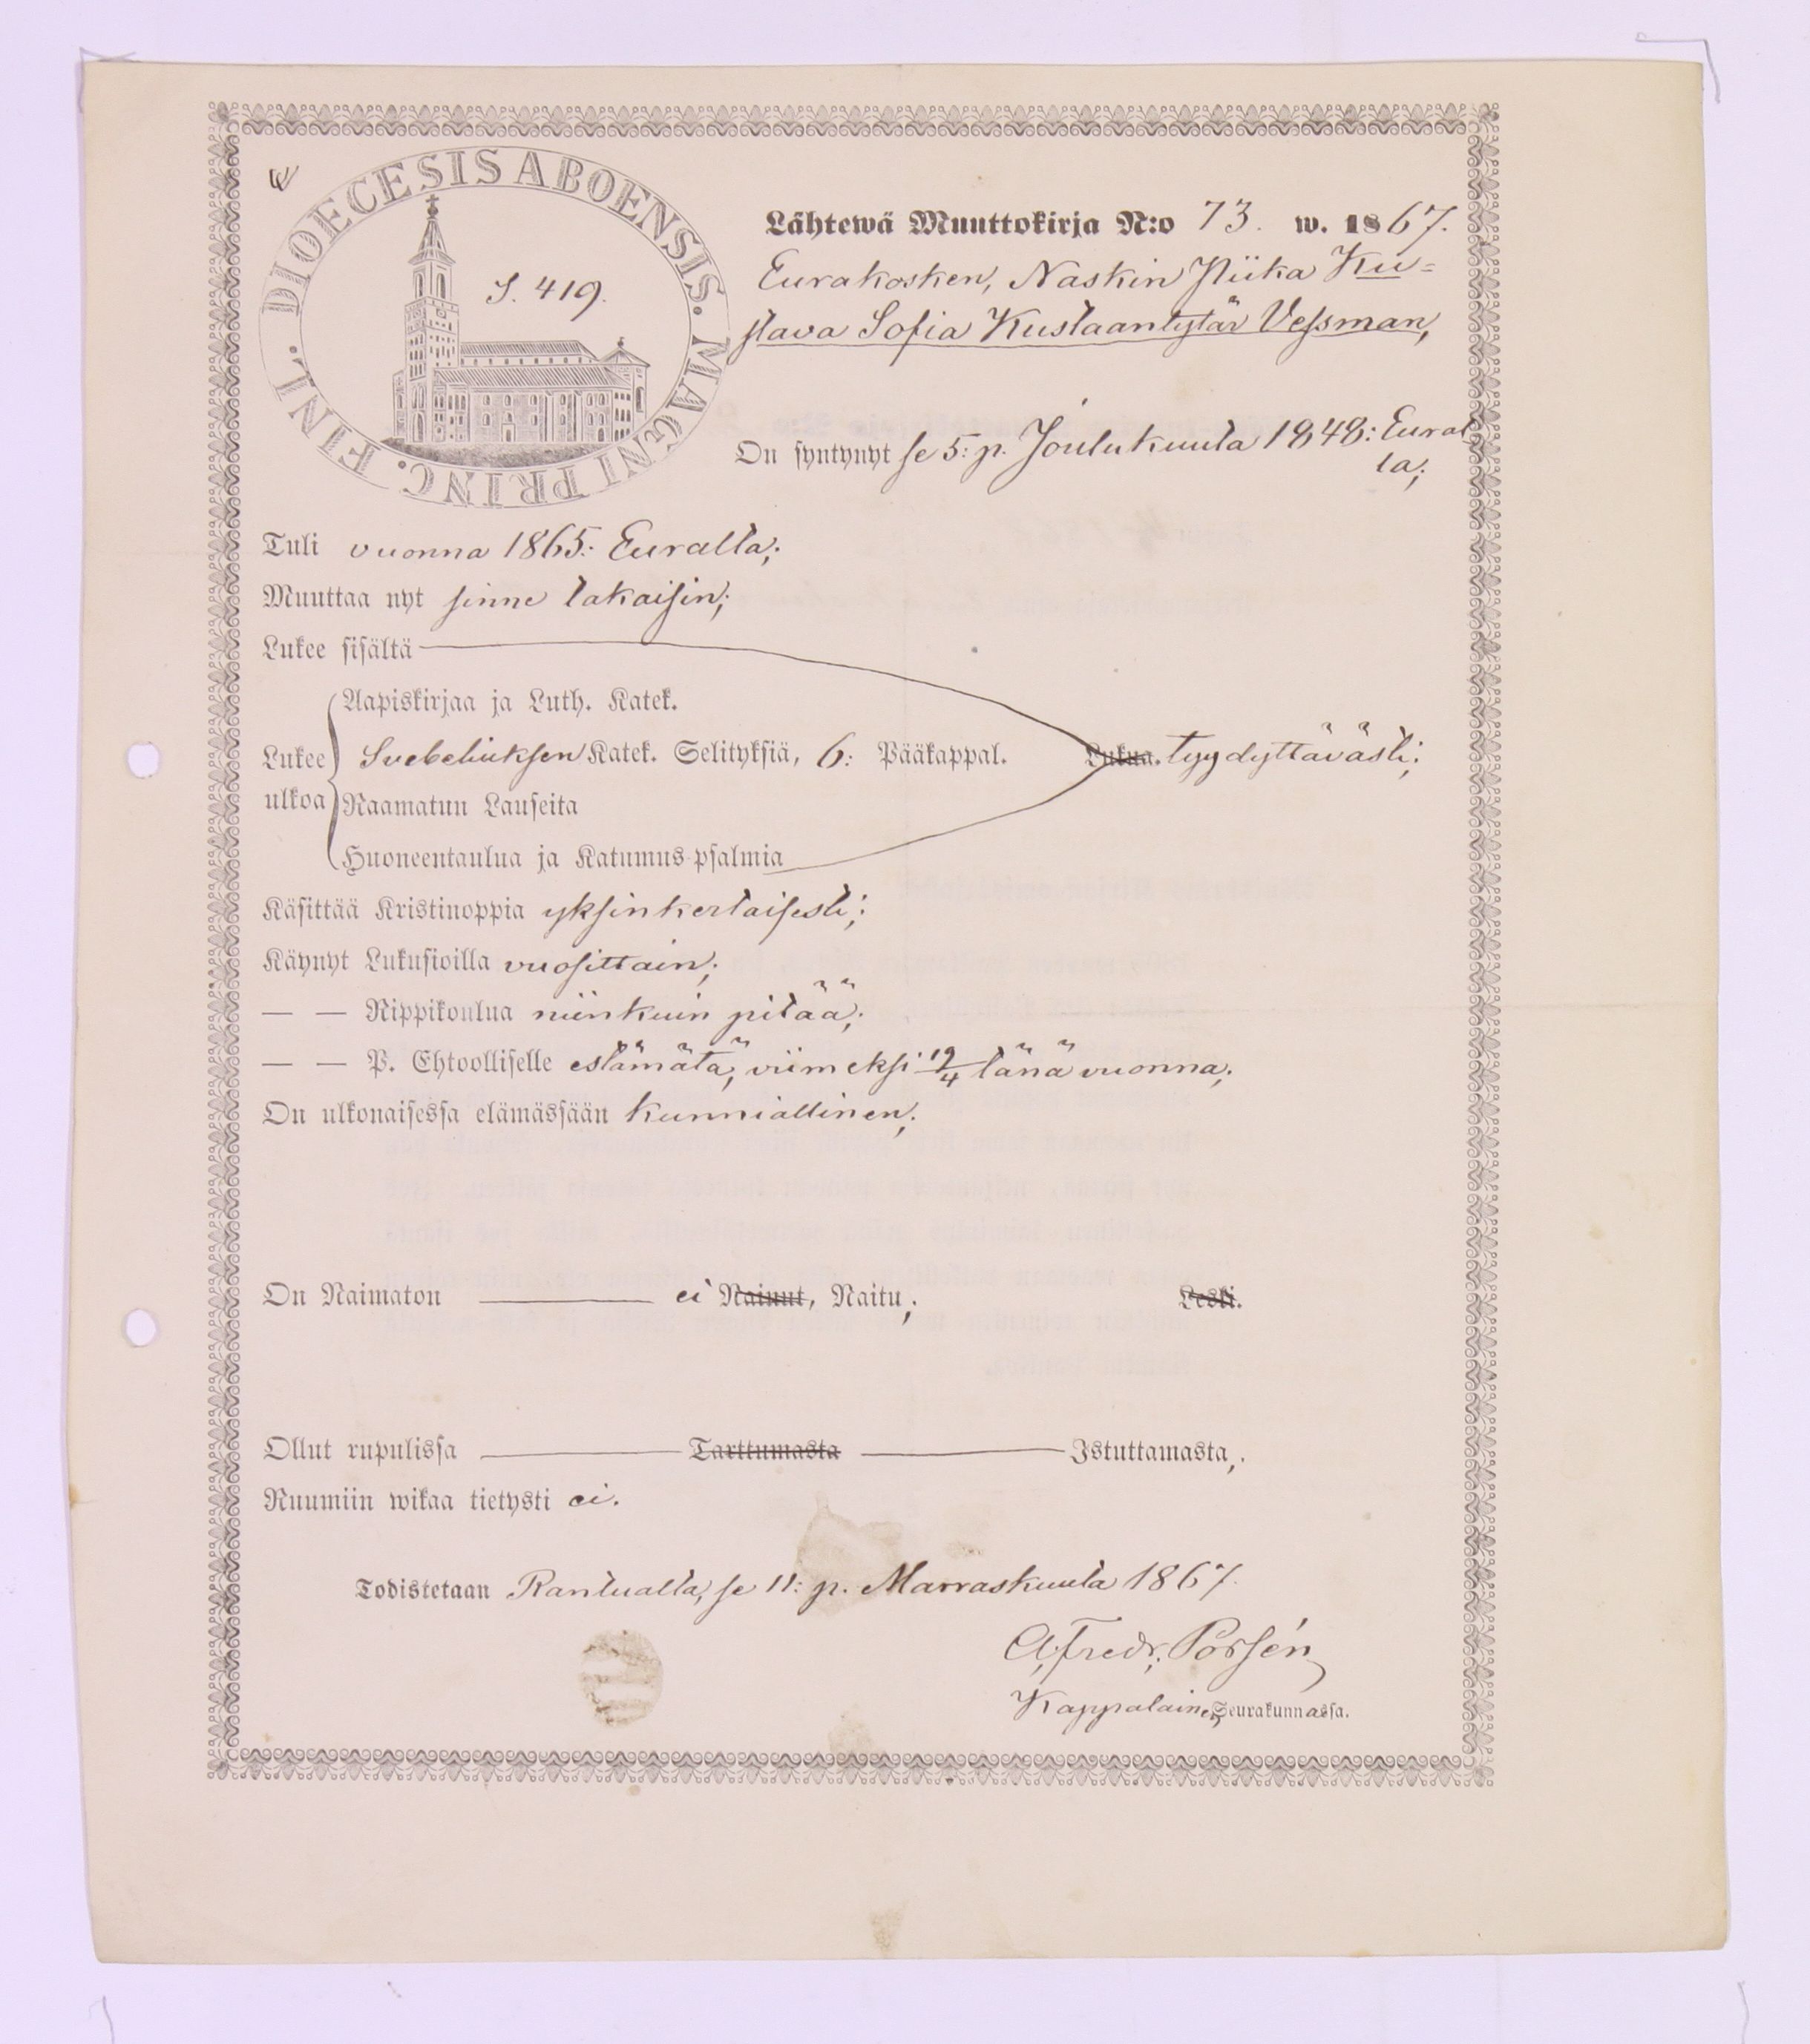 DIOECESIS ABOENSIS. MAGNI PRINC. FINL.
S. 419.
Lähtewä Muuttokirja N:o 73. w. 1867.
Eurakosken, Naskin Piika Ku=
stava Sofia Kustaantytär Vessman,
On syntynyt se 5: p. Joulukuuta 1848: Eural
la;
Tuli vuonna 1865: Euralta;
Muuttaa nyt sinne takaisin;
Lukee sisältä
Aapiskirjaa ja Luth. Katek.
Lukee ulkoa Svebeliuksen Katek. Selityksiä, 6: Pääkappal. Lukua. tyydyttävästi;
Raamatun Lauseita
Huoneentaulua ja Katumus-psalmia
Käsittää Kristinoppia yksinkertaisesti;
Käynyt Lukusioilla vuosittain;
— — Rippikoulua niinkuin pitää;
— — P. Ehtoolliselle estämätä, viimeksi 19/4 tänä vuonna;
On ulkonaisessa elämässään kunniallinen;
On Naimaton ei Nainut, Naitu; Leski.
Ollut rupulissa Tarttumasta Istuttamasta,
Ruumiin wikaa tietysti ei.
Todistetaan Rantualla, se 11: p. Marraskuuta 1867.
A, Fredr, Porsén
Kappalainen Seurakunnassa.